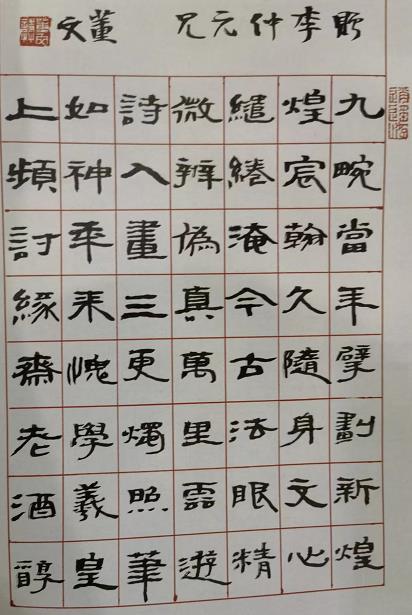 李仲元兄
九畹當年擘劃新煌
煌宸翰久隨身文心
繾綣淹今古法眼精
微辨偽真萬里雲遊
詩入畫三更燭照筆
如神年來愧學羲皇
上頻討緣齋老酒醇
董文